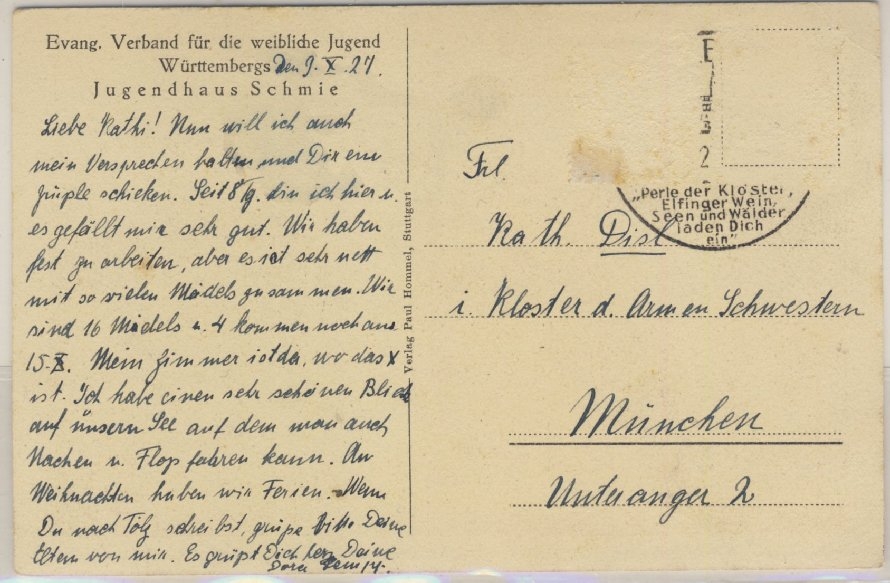 Evang. Verband für die weibliche Jugend
Württembergs den 9. X. 27.
Jugendhaus Schmie
Liebe Kathi! Nun will ich auch
mein Versprechen halten und Dir ein
schicken. Seit 8 Tg. bin ich hier u.
es gefällt mir sehr gut. Wir haben
fest zu arbeiten, aber es ist sehr nett
mit so vielen Mädels zusammen. Wir
sind 16 Mädels u. 4 kommen noch am
15. X. Mein Zimmer ist da, wo das X
ist. Ich habe einen sehr schönen Blick
auf unsern See auf dem man auch
Nachen u. Floß fahren kann. An
Weihnachten haben wir Ferien. Wenn
Du nach Tölz schreibst, grüße bitte Deine
Eltern von mir. Es grüßt Dich herz. Deine
Dora
Verlag Paul Hommel, Stuttgart
2
„Perle der Klöster,
Elfinger Wein,
Seen und Wälder
laden Dich
ein"
Frl.
Kath. Disl
i. Kloster d. Armen Schwestern
München
Unteranger 2